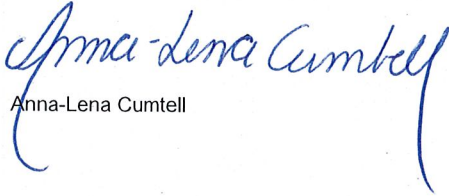 Anna-Lena Cumtell
Anna-Lena Cumtell